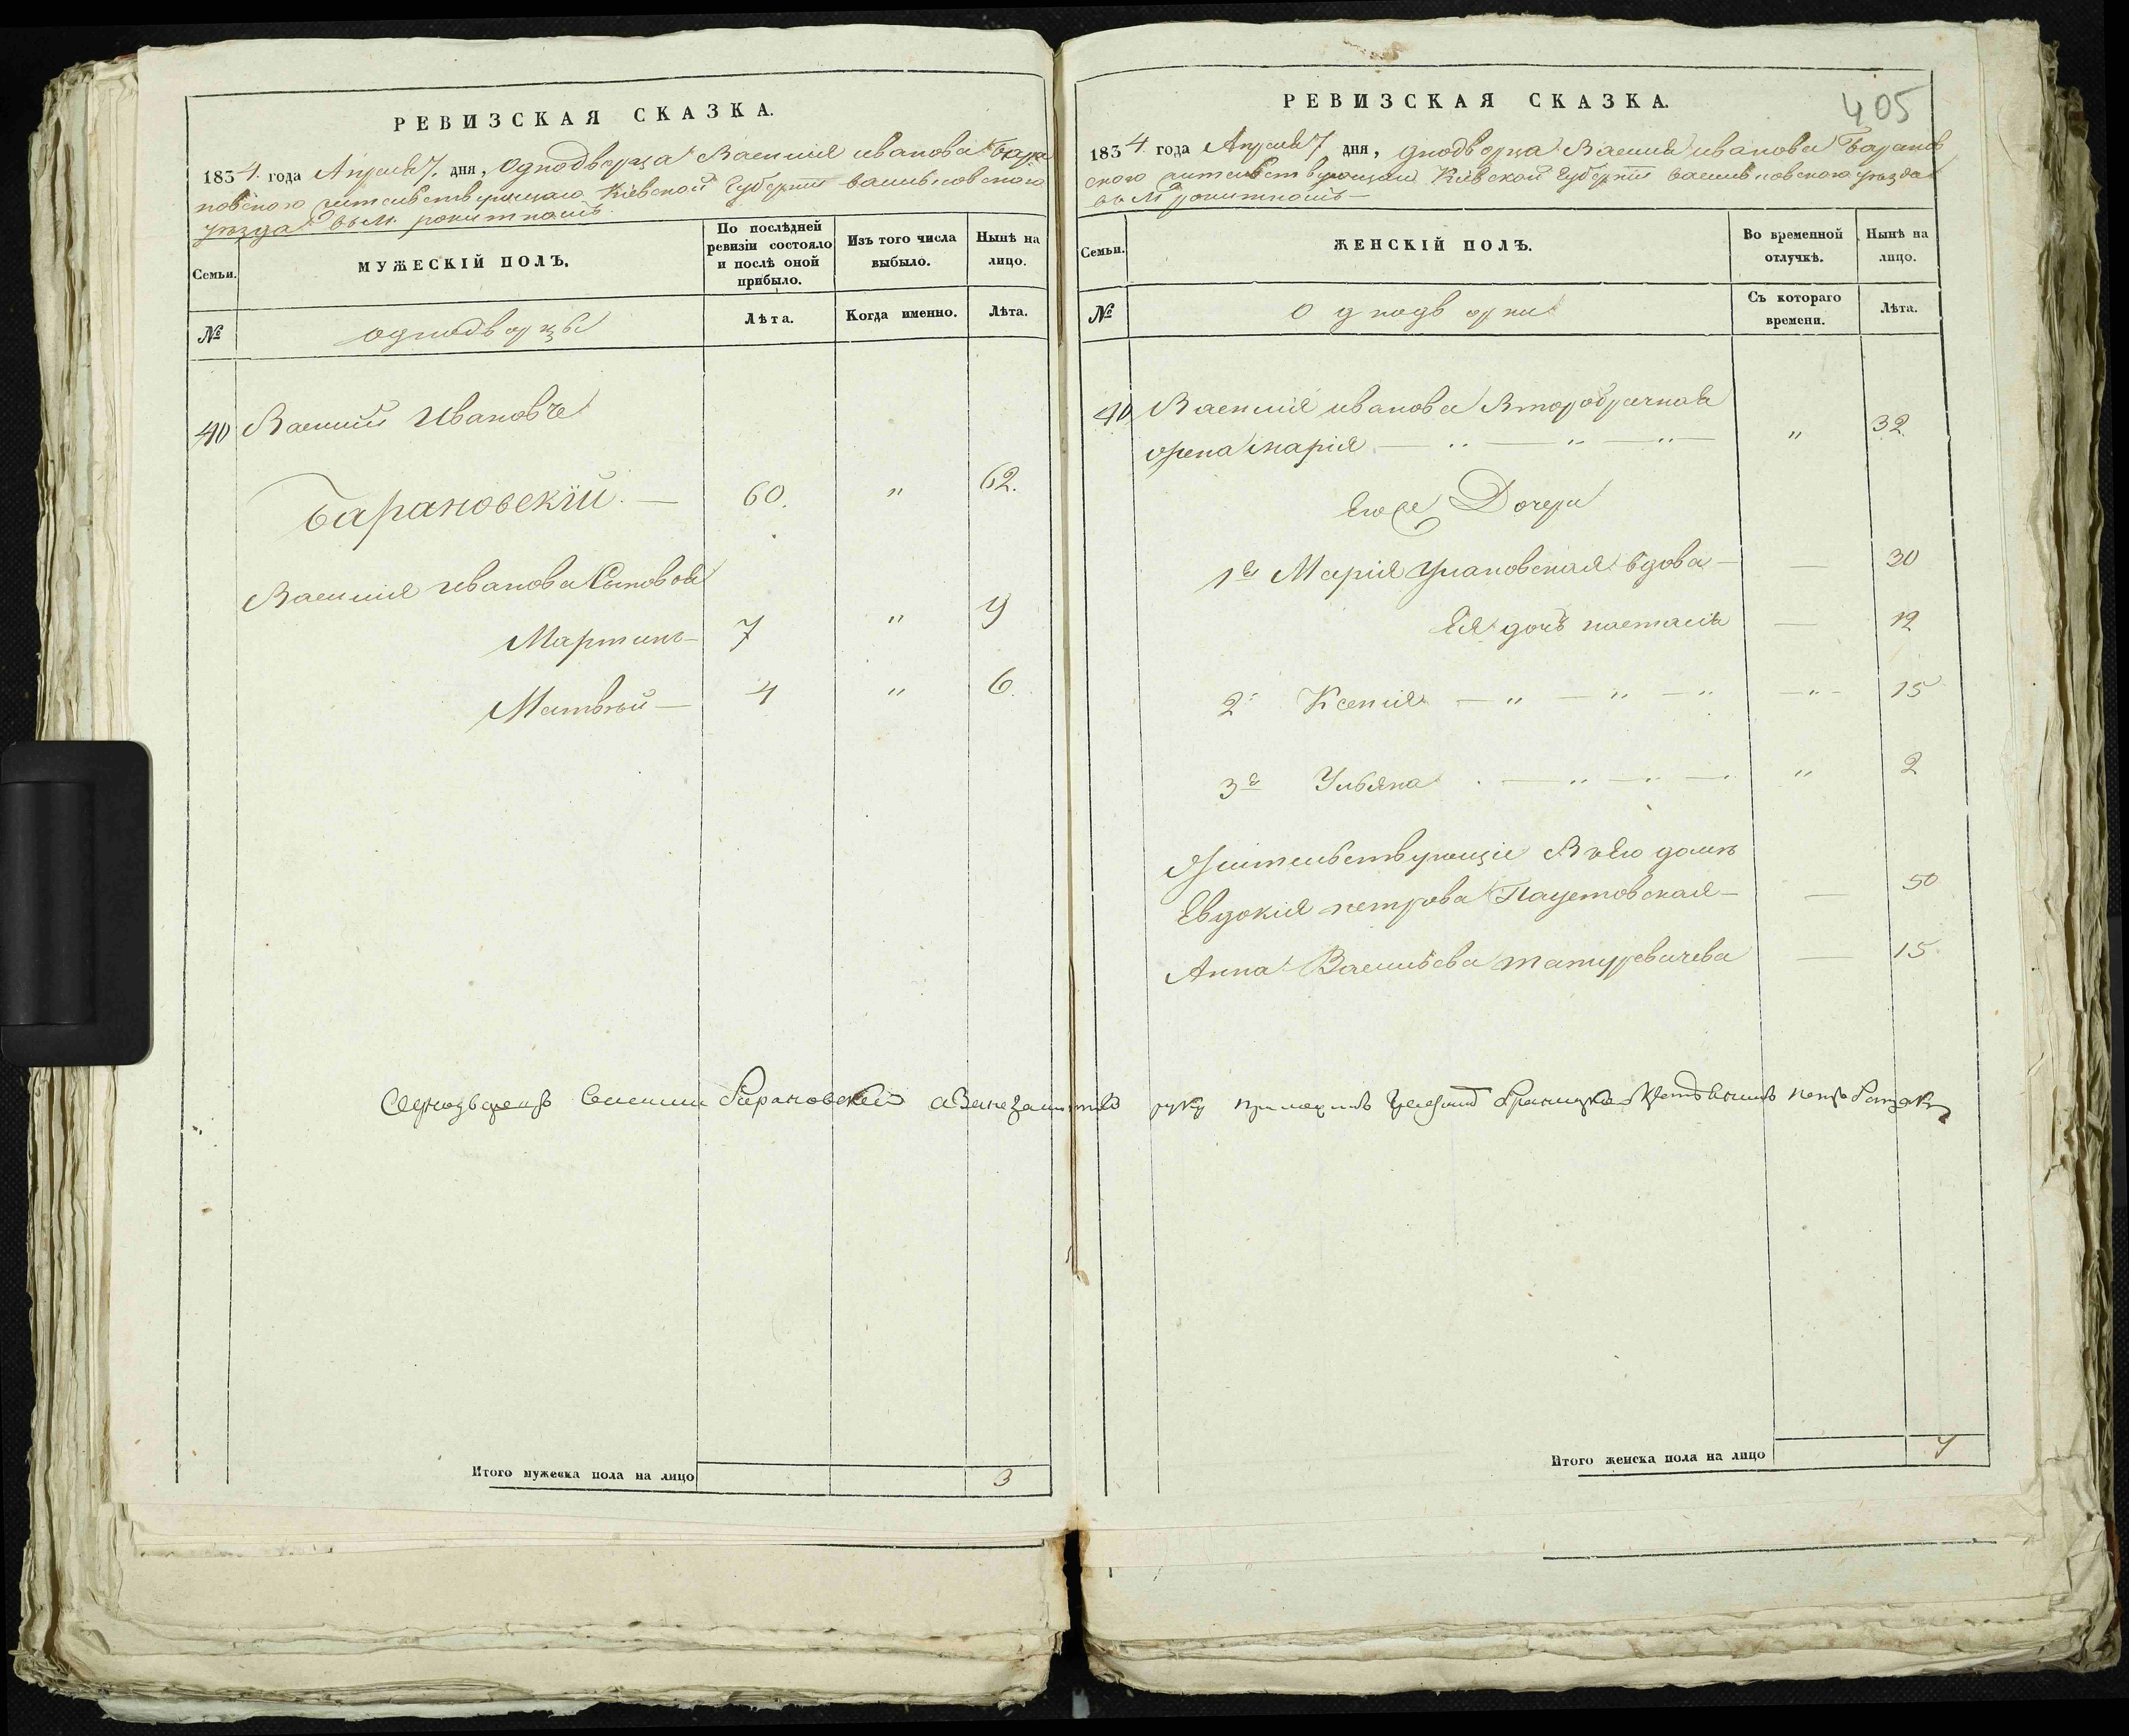 РЕВИЗСКАЯ СКАЗКА.
1834. года Апреля 7. дня, однодворца Василия иванова Бара
новского жительствующаго Кіевской Губерніи васильковского
уѣзда въ М. рокитномъ
Семьи.
МУЖЕСКІЙ ПОЛЪ.
По послѣдней
ревизіи состояло
и послѣ оной
прибыло.
Изъ того числа
выбыло.
Нынѣ на
лицо.
№
однодворцы
Лѣта.
Когда именно.
Лѣта.
40 Василий Ивановъ
Барановскій. — 60. " 62.
Василия Иванова Сыновья
Мартинъ — 7 " 9
Матвѣй — 4 " 6.
Итого мужеска пола на лицо 3
405
РЕВИЗСКАЯ СКАЗКА.
1834 года Апреля 7 дня, однодворца Василия иванова Баранов
ского жительствующаго Кіевской Губерніи васильковского уѣзда
въ М рокитномъ —
Семьи.
ЖЕНСКІЙ ПОЛЪ.
Во временной
отлучкѣ.
Нынѣ на
лицо.
№
Однодворки
Съ котораго
времени.
Лѣта.
40 Василия иванова Второбрачная
жена марія — " — " — " — " 32.
Его же Дочери
1я Марія Улановская вдова — — 30
Ея дочь настасія — 12
2я Ксения — " — " — " — " — 15
3я Ульяна — " — " — " 2
Жительствующіе В его домѣ
Евдокия петрова Паустовская — — 50
Анна Васильева татуревичева — 15.
Однодворецъ Василий Барановский а Вне руку приложилъ
Итого женска пола на лицо 7